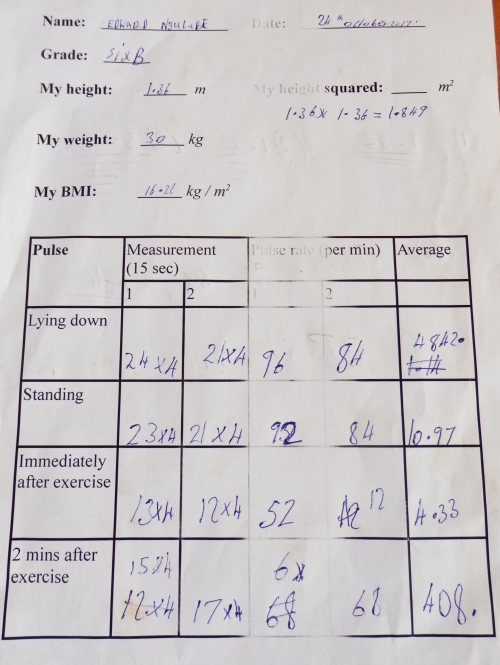 Name: EDWARD Date: 24th october 2017.
Grade: Six B
My height: 1.36 m My height squared: ____ m²
1.36 x 1.36 = 1.849
My weight: 30 kg
My BMI: 16.22 kg / m²
Pulse Measurement (15 sec) Pulse rate (per min) Average
1 2 1 2
Lying down 24x4 21x4 96 84 4842.
Standing 23x4 21x4 92 84 10.97
Immediately after exercise 13x4 12x4 52 12 4.33
2 mins after exercise 15x4 6x
12x4 17x4 68 68 408.